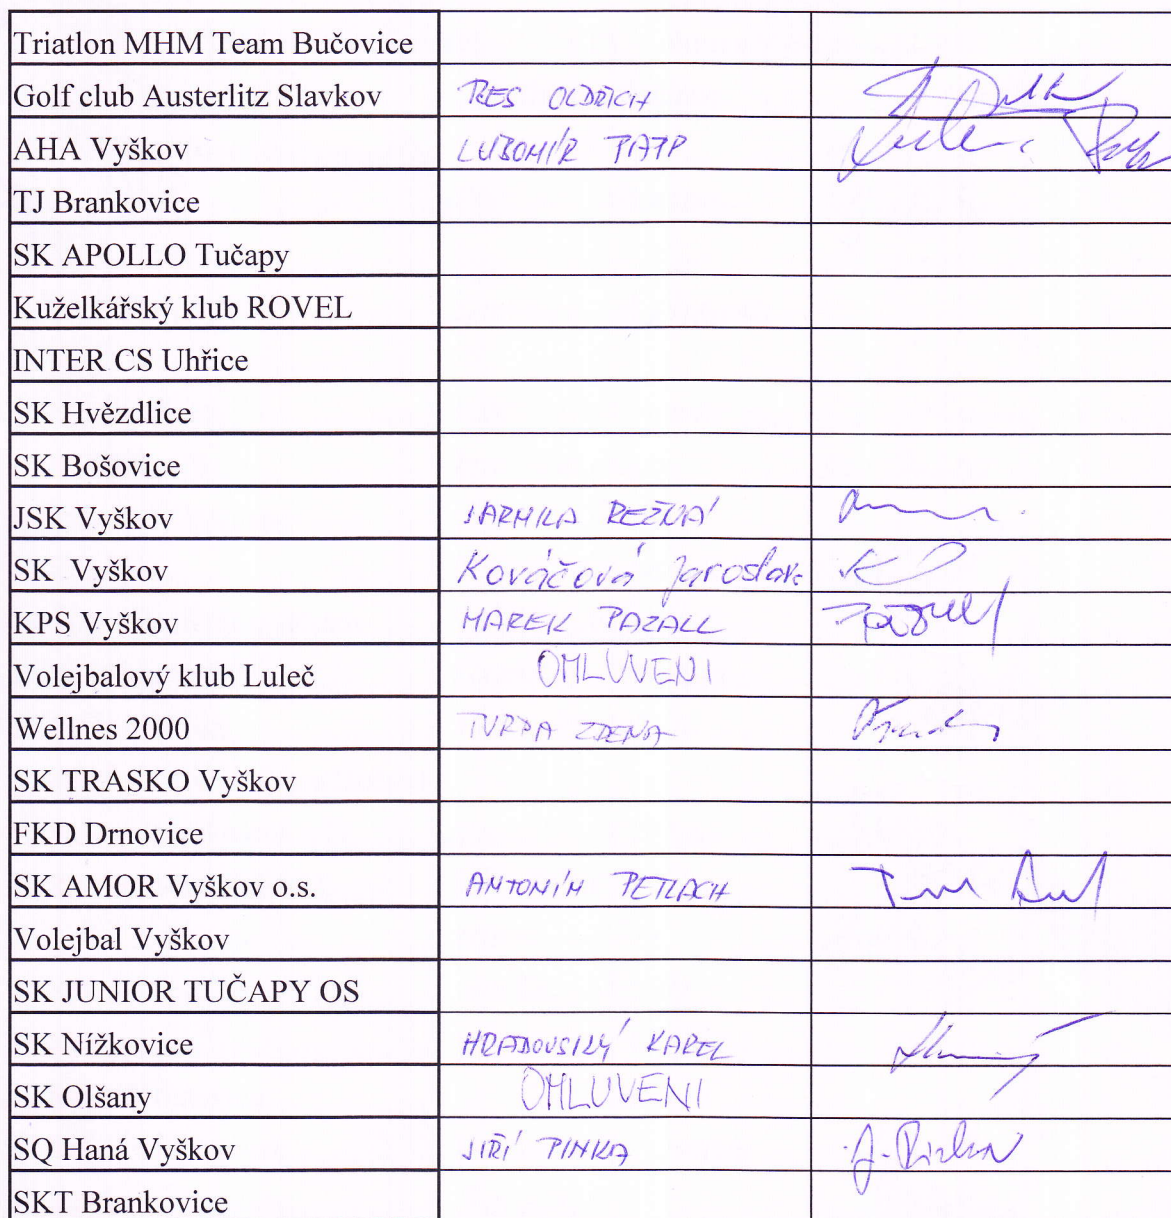 Triatlon MHM Team Bučovice
Golf club Austerlitz Slavkov OLDŘICH
AHA Vyškov LUBOMÍR
TJ Brankovice
SK APOLLO Tučapy
Kuželkářský klub ROVEL
INTER CS Uhřice
SK Hvězdlice
SK Bošovice
JSK Vyškov JARMILA ŘEZNÁ
SK Vyškov Kováčová Jaroslava
KPS Vyškov MAREK PAZALL
Volejbalový klub Luleč OMLUVENI
Wellnes 2000 TVRDÁ ZDENA
SK TRASKO Vyškov
FKD Drnovice
SK AMOR Vyškov o.s. ANTONÍN PETLACH
Volejbal Vyškov
SK JUNIOR TUČAPY OS
SK Nížkovice HRADOVSKÝ KAREL
SK Olšany OMLUVENI
SQ Haná Vyškov JIŘÍ PINKA
SKT Brankovice